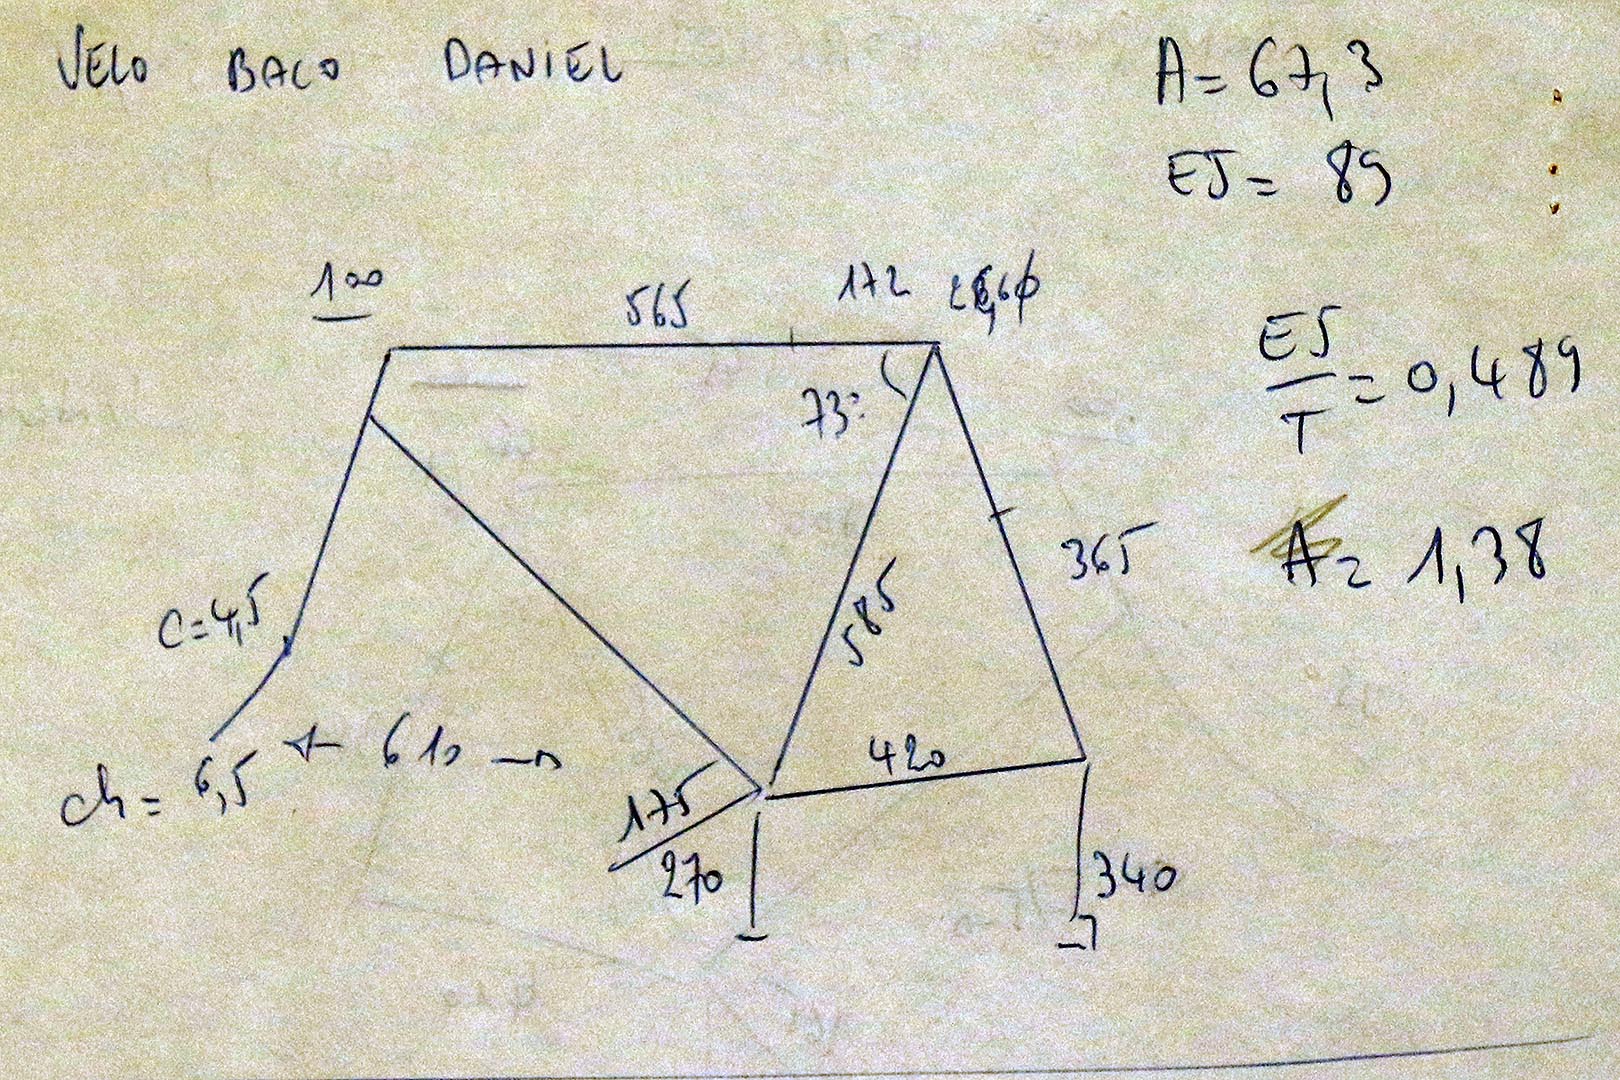 VELO BACO DANIEL
A = 67,3
EJ = 89
100
565
172
73°
EJ/T = 0,489
365
A = 1,38
585
C = 4,5
ch = 6,5
610
420
175
270
340